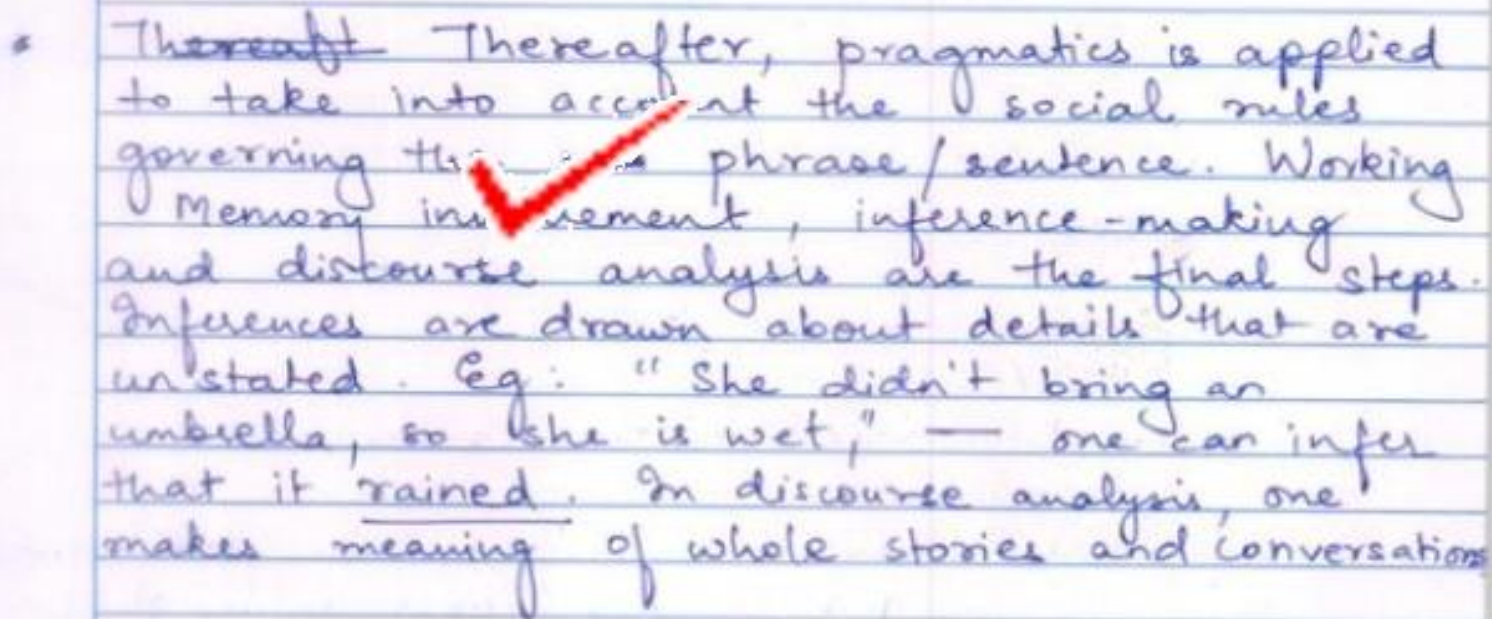 Thereaft Thereafter, pragmatics is applied
to take into account the social rules
governing phrase/sentence. Working
Memory involvement, inference-making
and discourse analysis are the final steps.
Inferences are drawn about details that are
unstated. Eg: "She didn't bring an
umbrella, so she is wet," — one can infer
that it rained. In discourse analysis, one
makes meaning of whole stories and conversations